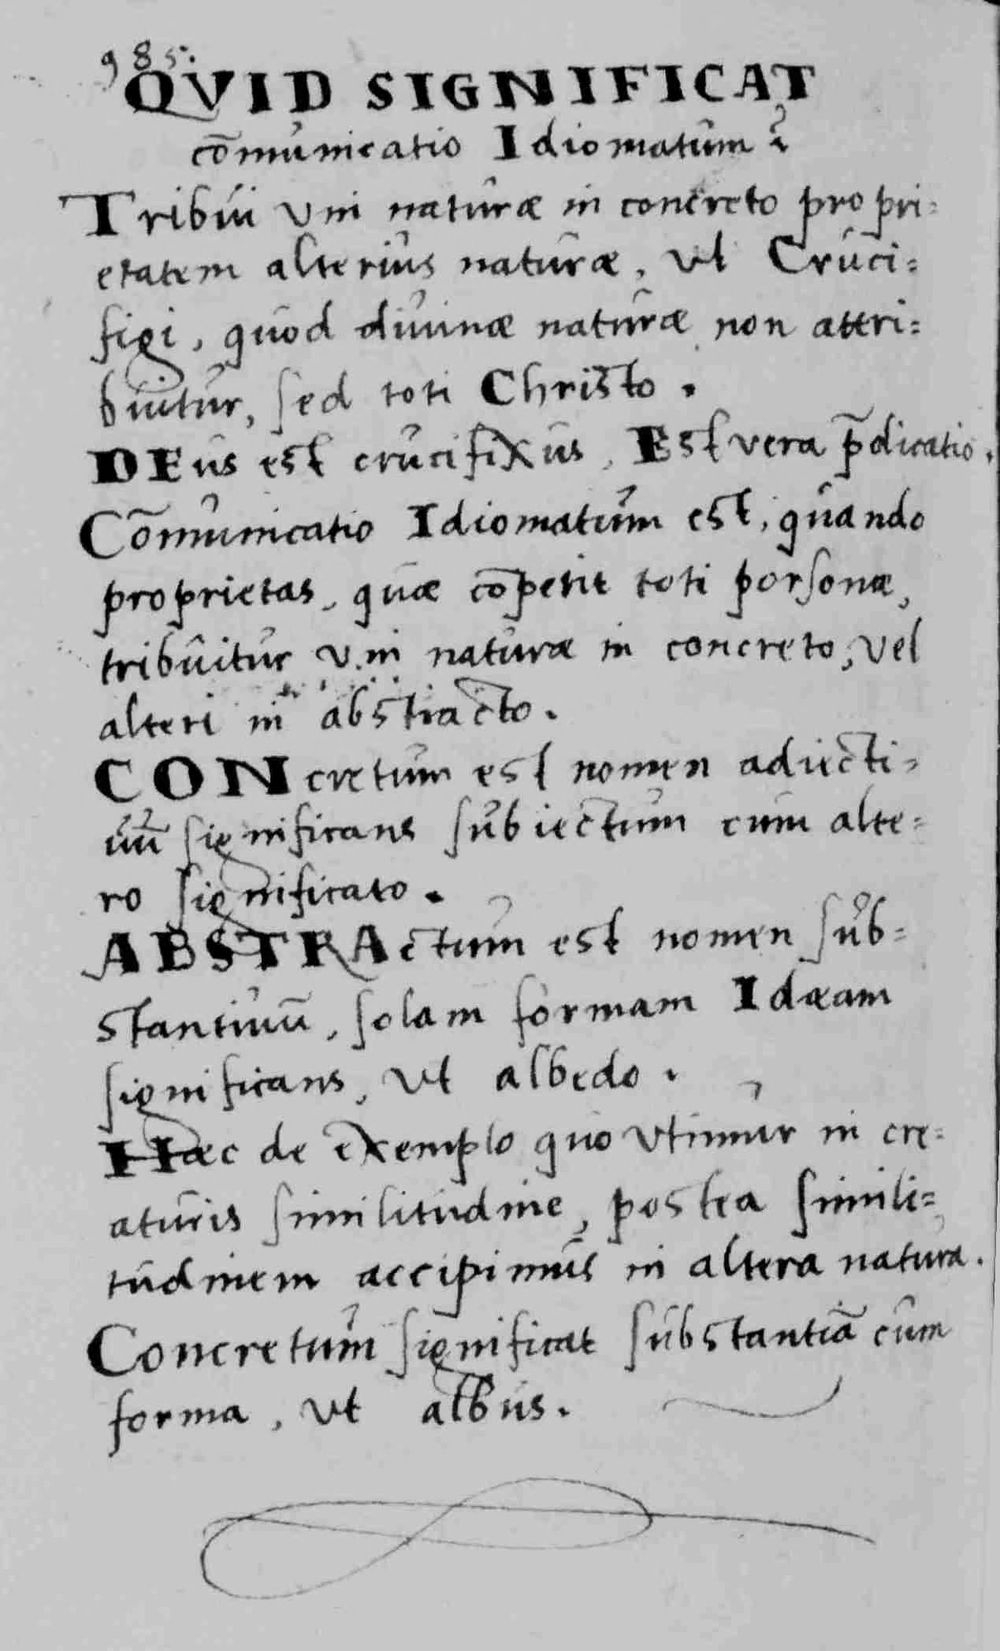 985.
QVID SIGNIFICAT
cōmunicatio Idiomatum?
Tribui vni naturæ in concreto propri=
etatem alterius naturæ, vt Cruci=
figi, quod diuinæ naturæ non attri=
buitur, sed toti Christo.
DEus est crucifixus, Est vera p̄dicatio.
Cōmunicatio Idiomatum est, quando
proprietas, quæ cōpetit toti personæ,
tribuitur vni naturæ in concreto, vel
alteri in abstracto.
CONcretum est nomen adiecti=
uū significans subiectum cum alte=
ro significato.
ABSTRActum est nomen sub=
stantiuū, solam formam Idæam
significans, vt albedo.
Hæc de exemplo quo vtimur in cre=
aturis similitudine, postea simili=
tudinem accipimus in altera natura.
Concretum significat substantiā cum
forma, vt albus.